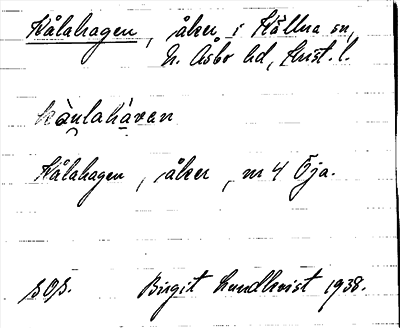 Kålahagen, åker i Källna sn,
N. Åsbo hd, Krist. l.
kàulahàvan
Kålahagen, åker, nr 4 Öja.
SOS. Birgit Lundkvist 1938.